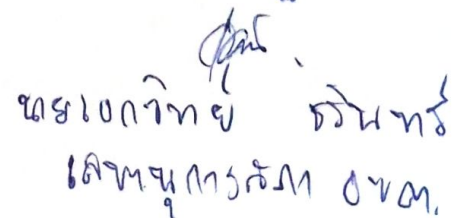 นายเอกวิทย์ ธรินทร์
เลขานุการสภา อบต.